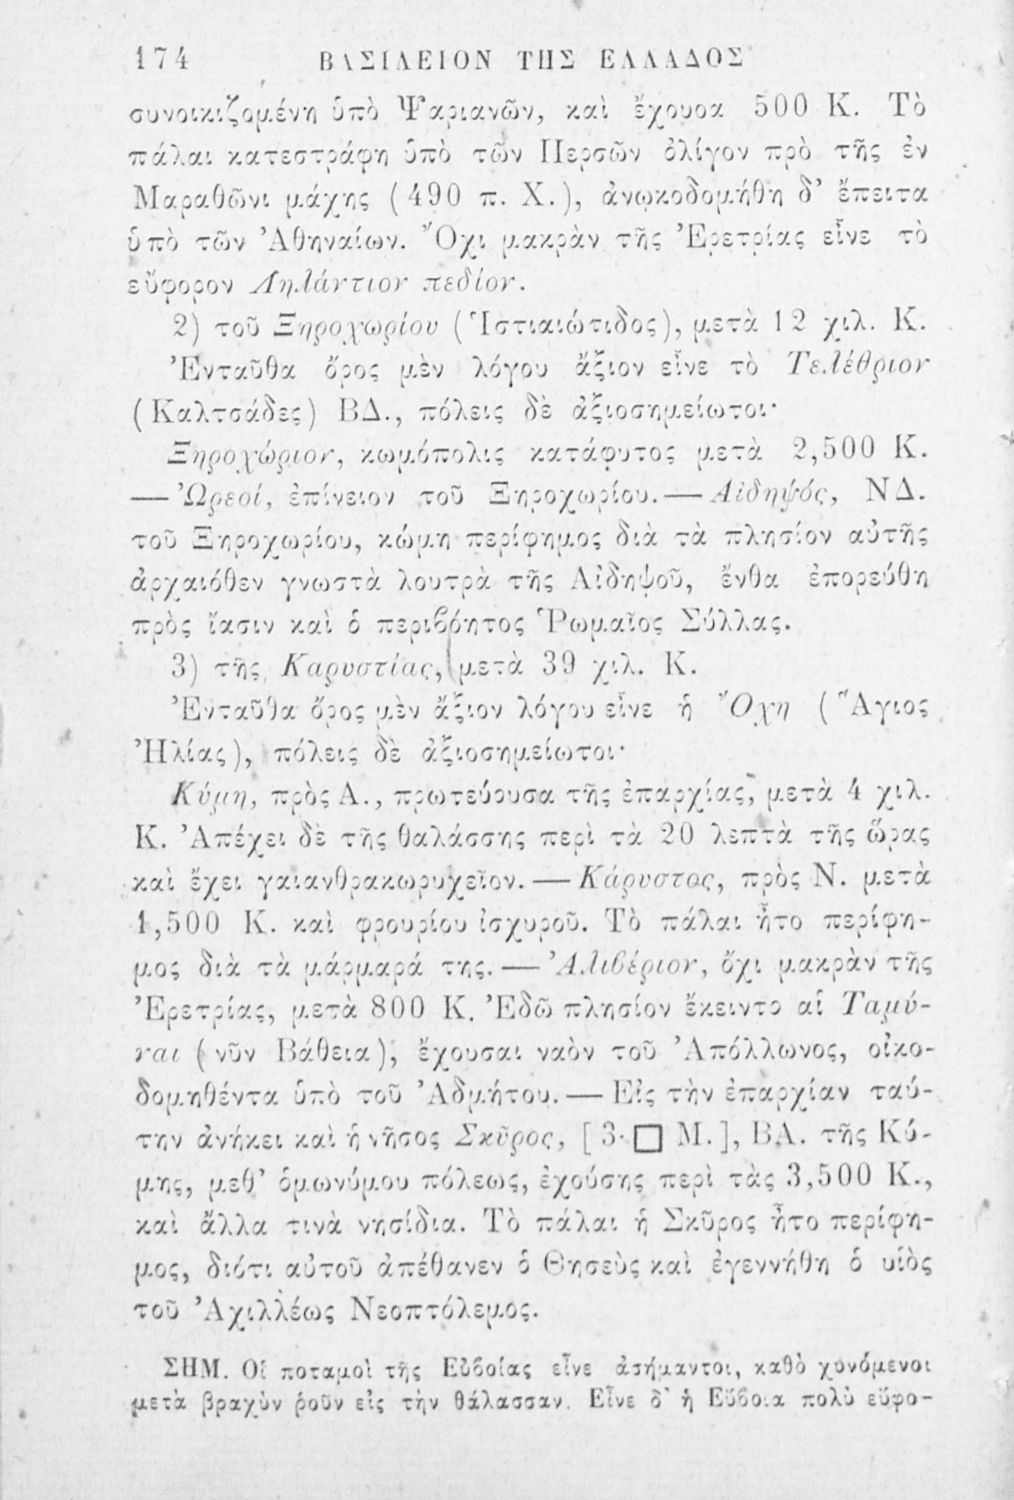 174 ΒΑΣΙΛΕΙΟΝ ΤΗΣ ΕΛΛΑΔΟΣ
συνοικιζομένη ὑπὸ Ψαριανῶν, καὶ ἔχουσα 500 Κ. Τὸ
πάλαι κατεστράφη ὑπὸ τῶν Περσῶν ὀλίγον πρὸ τῆς ἐν
Μαραθῶνι μάχης (490 π. Χ.), ἀνῳκοδομήθη δ’ ἔπειτα
ὑπὸ τῶν Ἀθηναίων. Ὄχι μακρὰν τῆς Ἐρετρίας εἶνε τὸ
εὔφορον Ληλάντιον πεδίον.
2) τοῦ Ξηροχωρίου (Ἱστιαιώτιδος), μετὰ 12 χιλ. Κ.
Ἐνταῦθα ὄρος μὲν λόγου ἄξιον εἶνε τὸ Τελέθριον
(Καλτσάδες) ΒΔ., πόλεις δὲ ἀξιοσημείωτοι·
Ξηροχώριον, κωμόπολις κατάφυτος μετὰ 2,500 Κ.
— Ὠρεοί, ἐπίνειον τοῦ Ξηροχωρίου. — Αἰδηψός, ΝΔ.
τοῦ Ξηροχωρίου, κώμη περίφημος διὰ τὰ πλησίον αὐτῆς
ἀρχαιόθεν γνωστὰ λουτρὰ τῆς Αἰδηψοῦ, ἔνθα ἐπορεύθη
πρὸς ἴασιν καὶ ὁ περιβόητος Ῥωμαῖος Σύλλας.
3) τῆς Καρυστίας, μετὰ 39 χιλ. Κ.
Ἐνταῦθα ὄρος μὲν ἄξιον λόγου εἶνε ἡ Ὄχη (Ἅγιος
Ἠλίας), πόλεις δὲ ἀξιοσημείωτοι·
Κύμη, πρὸς Α., πρωτεύουσα τῆς ἐπαρχίας, μετὰ 4 χιλ.
Κ. Ἀπέχει δὲ τῆς θαλάσσης περὶ τὰ 20 λεπτὰ τῆς ὥρας
καὶ ἔχει γαιανθρακωρυχεῖον. — Κάρυστος, πρὸς Ν. μετὰ
1,500 Κ. καὶ φρουρίου ἰσχυροῦ. Τὸ πάλαι ἦτο περίφη-
μος διὰ τὰ μάρμαρά της. — Ἀλιβέριον, ὄχι μακρὰν τῆς
Ἐρετρίας, μετὰ 800 Κ. Ἐδῶ πλησίον ἔκειντο αἱ Ταμύ-
ναι (νῦν Βάθεια), ἔχουσαι ναὸν τοῦ Ἀπόλλωνος, οἰκο-
δομηθέντα ὑπὸ τοῦ Ἀδμήτου. — Εἰς τὴν ἐπαρχίαν ταύ-
την ἀνήκει καὶ ἡ νῆσος Σκῦρος, [3 □ Μ.], ΒΑ. τῆς Κύ-
μης, μεθ’ ὁμωνύμου πόλεως, ἐχούσης περὶ τὰς 3,500 Κ.,
καὶ ἄλλα τινὰ νησίδια. Τὸ πάλαι ἡ Σκῦρος ἦτο περίφη-
μος, διότι αὐτοῦ ἀπέθανεν ὁ Θησεὺς καὶ ἐγεννήθη ὁ υἱὸς
τοῦ Ἀχιλλέως Νεοπτόλεμος.
ΣΗΜ. Οἱ ποταμοὶ τῆς Εὐβοίας εἶνε ἀσήμαντοι, καθὸ χυνόμενοι
μετὰ βραχὺν ῥοῦν εἰς τὴν θάλασσαν. Εἶνε δ’ ἡ Εὔβοια πολὺ εὔφο-